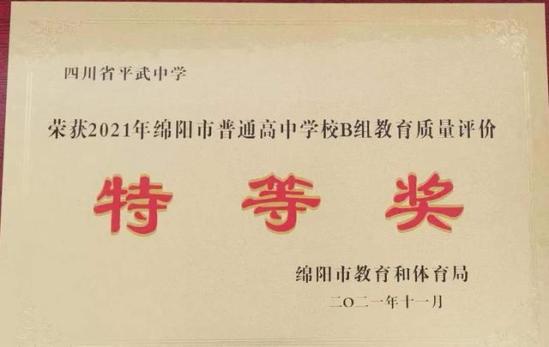 四川省平武中学
荣获2021年绵阳市普通高中学校B组教育质量评价
特等奖
绵阳市教育和体育局
二〇二一年十一月